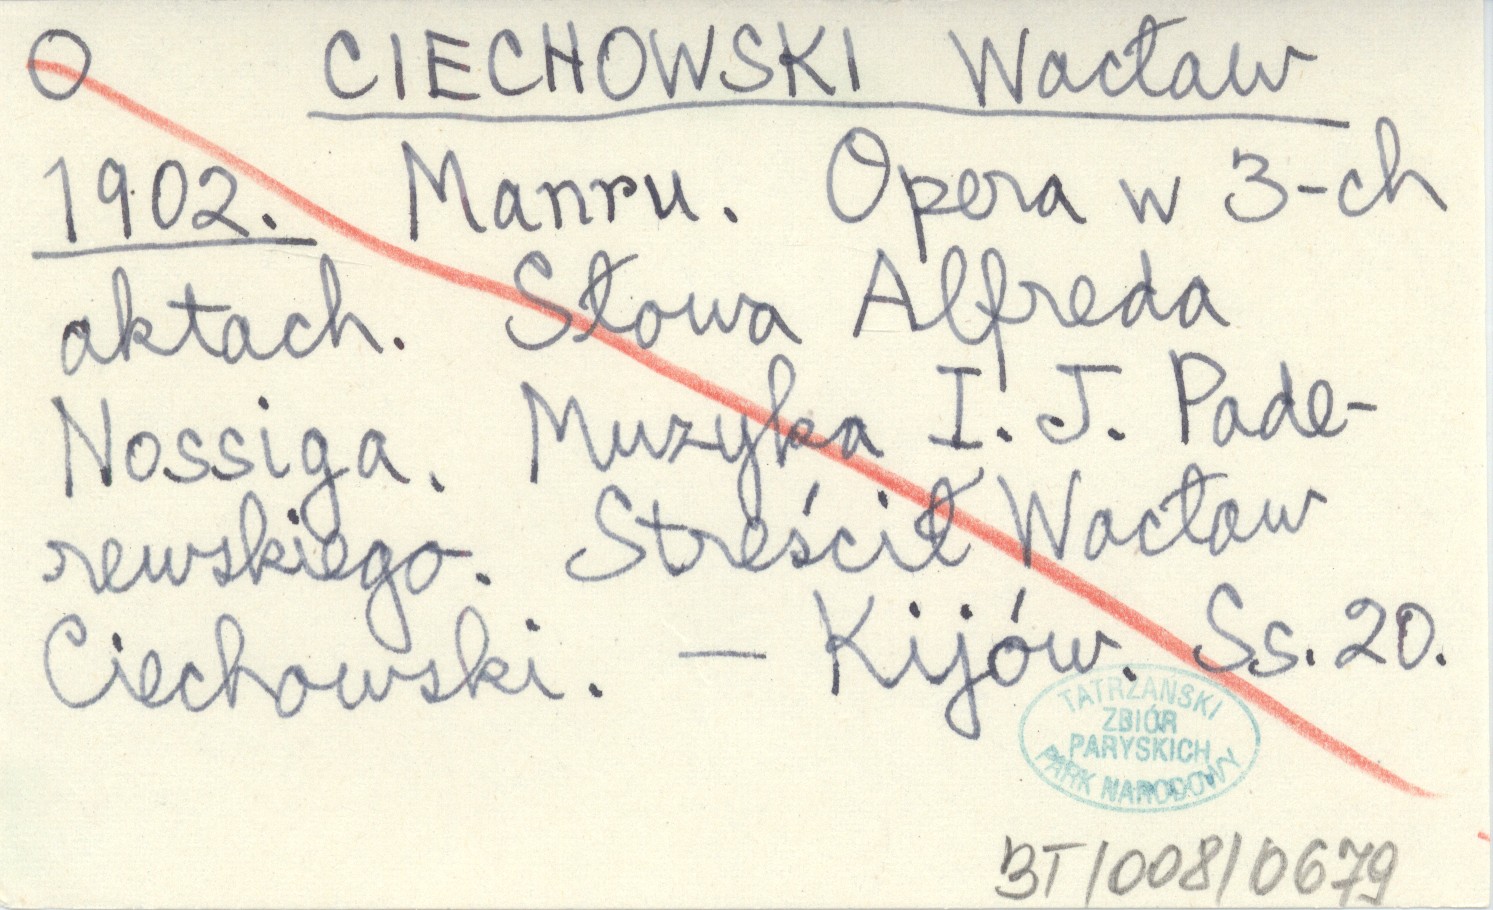 O CIECHOWSKI Wacław
1902. Manru. Opera w 3-ch
aktach. Słowa Alfreda
Nossiga. Muzyka I. J. Pade-
rewskiego. Streścił Wacław
Ciechowski. — Kijów. Ss. 20.
TATRZAŃSKI
ZBIÓR
PARYSKICH
PARK NARODOWY
BT/008/0679